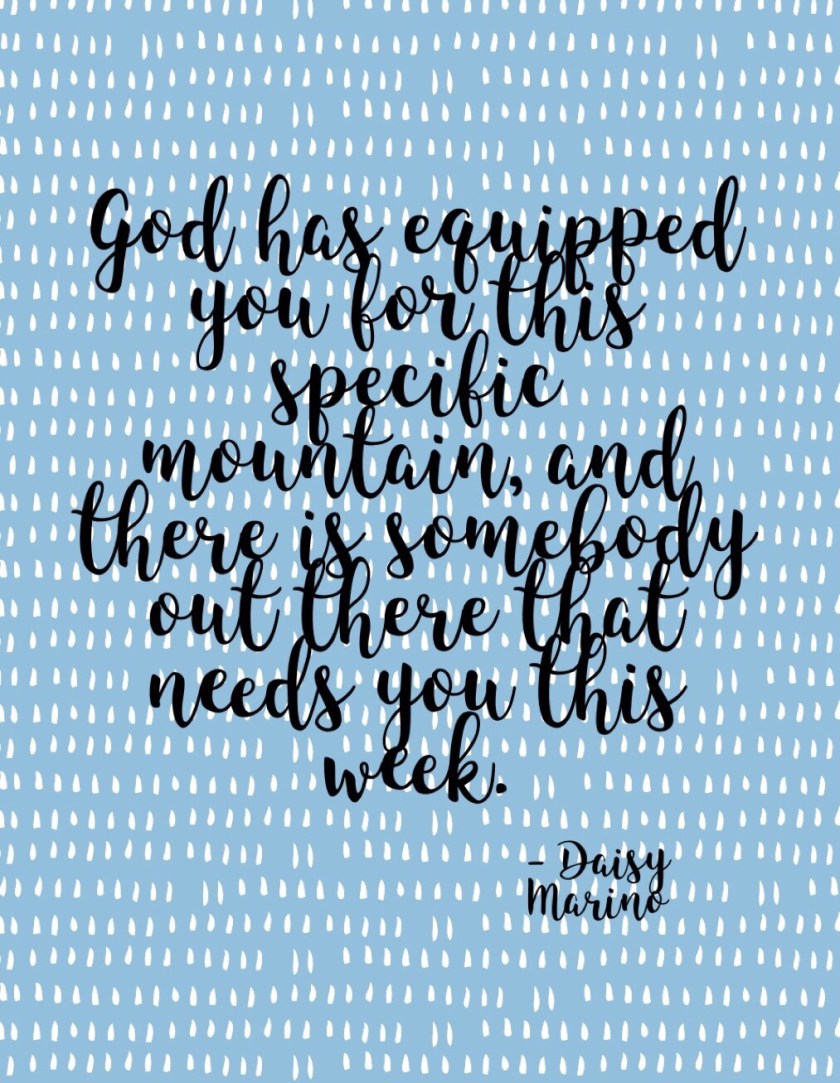 God has equipped
you for this
specific
mountain, and
there is somebody
out there that
needs you this
week.
- Daisy
Marino